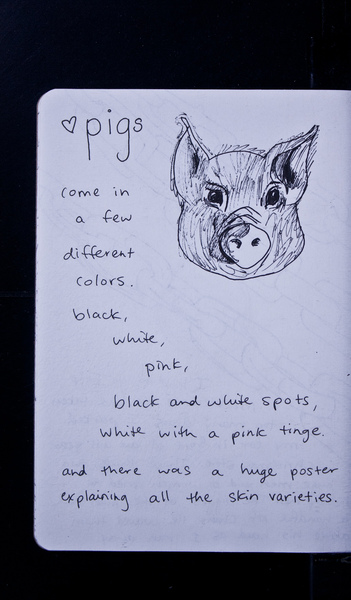 ♡ pigs
come in
a few
different
colors.
black,
white,
pink,
black and white spots,
white with a pink tinge.
and there was a huge poster
explaining all the skin varieties.